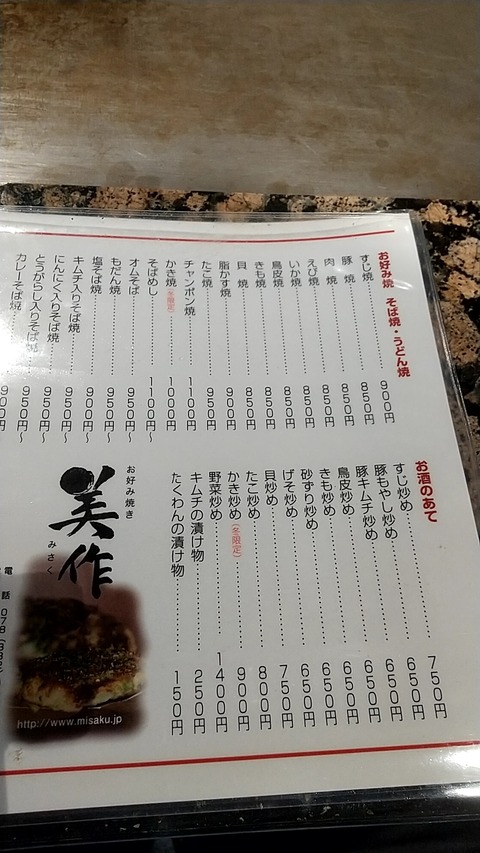 お好み焼 そば焼・うどん焼
すじ焼 900円
豚 焼 850円
肉 焼 850円
えび焼 850円
いか焼 850円
鳥皮焼 850円
きも焼 850円
貝 焼 850円
脂かす焼 900円
たこ焼 950円
チャンポン焼 1100円
かき焼(冬限定) 1000円
そばめし 1100円~
オムそば 950円~
もだん焼 950円~
塩そば焼 900円~
キムチ入りそば焼 950円~
にんにく入りそば焼 950円~
とうがらし入りそば焼 950円~
カレーそば焼 900円
お酒のあて
すじ炒め 750円
豚もやし炒め 650円
豚キムチ炒め 650円
鳥皮炒め 650円
きも炒め 650円
砂ずり炒め 650円
げそ炒め 650円
貝炒め 750円
たこ炒め 800円
かき炒め(冬限定) 900円
野菜炒め 1400円
キムチの漬け物 250円
たくわんの漬け物 150円
お好み焼き
美作
みさく
電話 078
http://www.misaku.jp